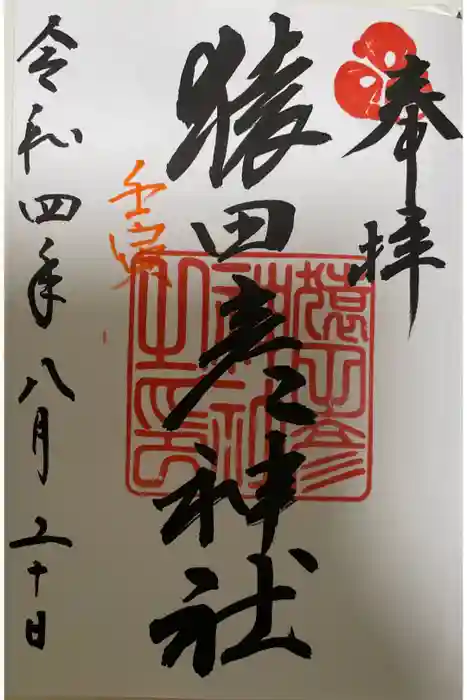 奉拝
猿田彦神社
猿田彦
神社
之印
壬寅
令和四年八月二十日